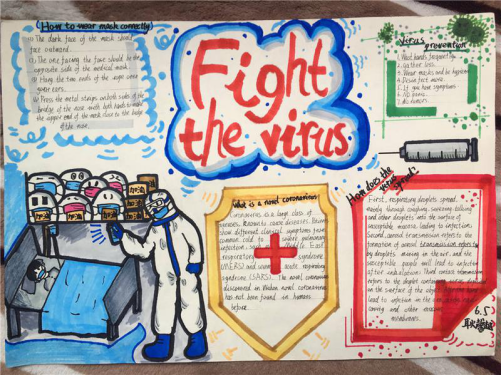 How to wear mask correctly
The dark face of the mask should
face outward.
The one facing the face should be the
opposite side of the medical mask
Hang the two ends of the rope over
your ears.
Press the metal strips on both sides of the
bridge of the nose with both hands to make
the upper end of the mask close to the bridge
of the nose.
Fight
the virus
Virus
prevention
1. Wash hands frequently
2. Gather less.
3. Wear masks and be hygienic
4. Disinfect more
5. If you have symptoms
6. No panic
7. No rumors
加油
加油
加油
加油
What is a novel coronavirus?
Coronavirus is a large class of
viruses, known to cause diseases.
show different clinical symptoms from
common cold to severe pulmonary
infection, such as Middle East
respiratory syndrome
(MERS) and severe acute respiratory
syndrome (SARS). The novel coronavirus
discovered in Wuhan novel coronavirus
has not been found in humans
before.
How does the virus spread?
First, respiratory droplets spread,
mainly through coughing, sneezing, talking
and other droplets into the surface of
susceptible mucosa, leading to infection
Second, aerosol transmission refers to
the formation of aerosol transmission refers to
by droplets mixing in the air, and the
susceptible people will lead to infection
after inhalation. Third contact transmission
refers to the droplet containing virus
in the surface of the object
lead to infection in the
caving and other
membranes.
6.5